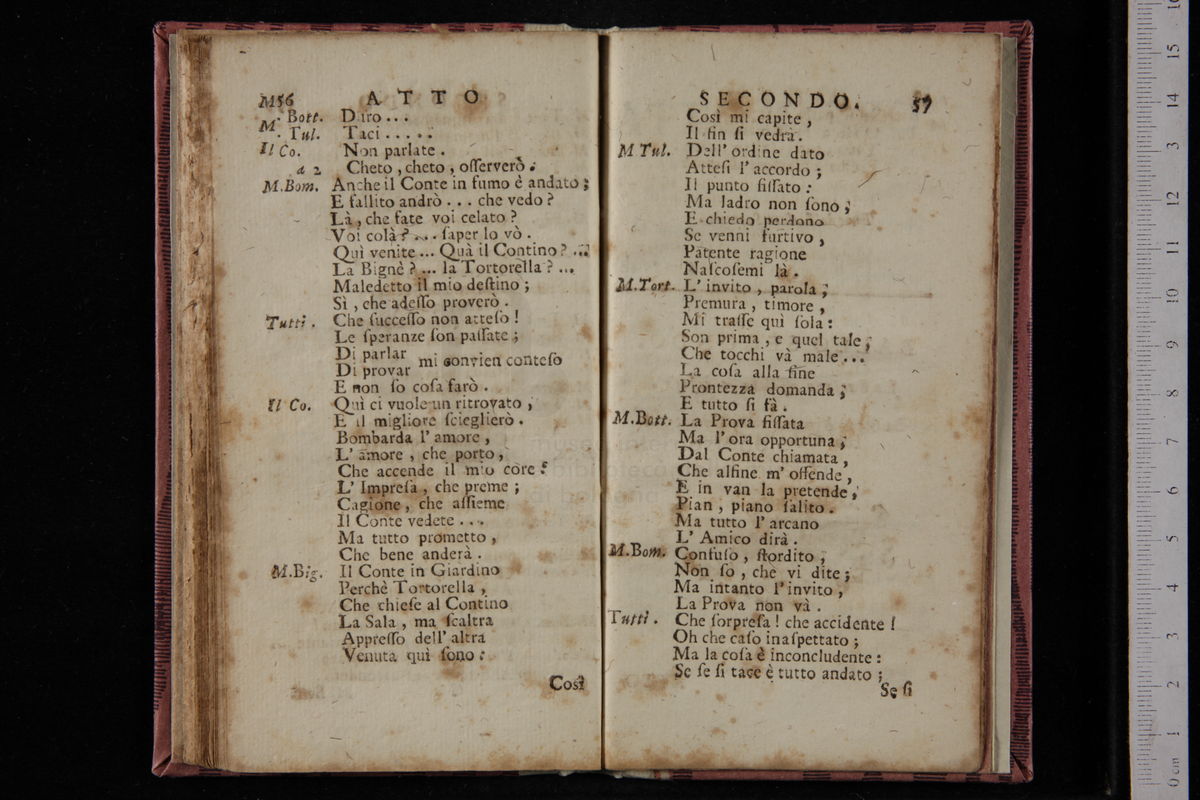 M56 ATTO
M. Bott. Diro...
M. Tul. Taci.....
Il Co. Non parlate.
a 2 Cheto, cheto, oſſerverò.
M.Bom. Anche il Conte in fumo è andato;
E fallito andrò... che vedo?
Là, che fate voi celato?
Voi colà?.... ſaper lo vò.
Quì venite... Quà il Contino?...
La Bignè?... la Tortorella?...
Maledetto il mio deſtino;
Sì, che adeſſo proverò.
Tutti. Che ſucceſſo non atteſo!
Le ſperanze ſon paſſate;
Di parlar
Di provar mi convien conteſo
E non ſo coſa farò.
Il Co. Quì ci vuole un ritrovato,
E il migliore ſcieglierò.
Bombarda l'amore,
L'amore, che porto,
Che accende il mio core:
L'Impreſa, che preme;
Cagione, che aſſieme
Il Conte vedete...
Ma tutto prometto,
Che bene anderà.
M.Big. Il Conte in Giardino
Perchè Tortorella,
Che chieſe al Contino
La Sala, ma ſcaltra
Appreſſo dell'altra
Venuta quì ſono:
Così
SECONDO. 57
Così mi capite,
Il fin ſi vedrà.
M Tul. Dell'ordine dato
Atteſi l'accordo;
Il punto fiſſato:
Ma ladro non ſono;
E chiedo perdono
Se venni furtivo,
Patente ragione
Naſcoſemi là.
M.Tort. L'invito, parola;
Premura, timore,
Mi traſſe quì ſola:
Son prima, e quel tale,
Che tocchi và male...
La coſa alla fine
Prontezza domanda;
E tutto ſi fà.
M.Bott. La Prova fiſſata
Ma l'ora opportuna;
Dal Conte chiamata,
Che alfine m'offende,
E in van la pretende,
Pian, piano ſalito.
Ma tutto l'arcano
L'Amico dirà.
M.Bom. Confuſo, ſtordito,
Non ſo, che vi dite;
Ma intanto l'invito,
La Prova non và.
Tutti. Che ſorpreſa! che accidente!
Oh che caſo inaſpettato;
Ma la coſa è inconcludente:
Se ſe ſi tace è tutto andato;
Se ſi